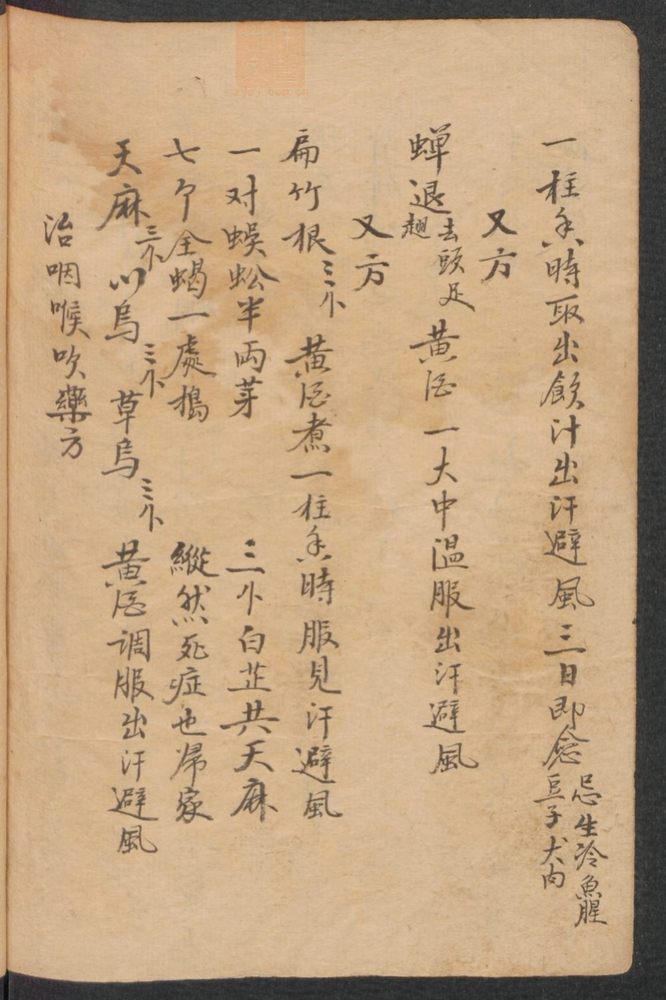 一柱香時取出飲汁出汗避風三日即愈忌生冷魚腥豆子犬肉
又方
蝉退去頭足翅 黄酒一大中温服出汗避風
又方
扁竹根三 黄酒煮一柱香時服見汗避風
一对蜈蚣半两芽 三 白芷共天麻
七个全蝎一處搗 縱然死症也帰家
天麻三 川烏三 草烏三 黄酒调服出汗避風
治咽喉吹藥方